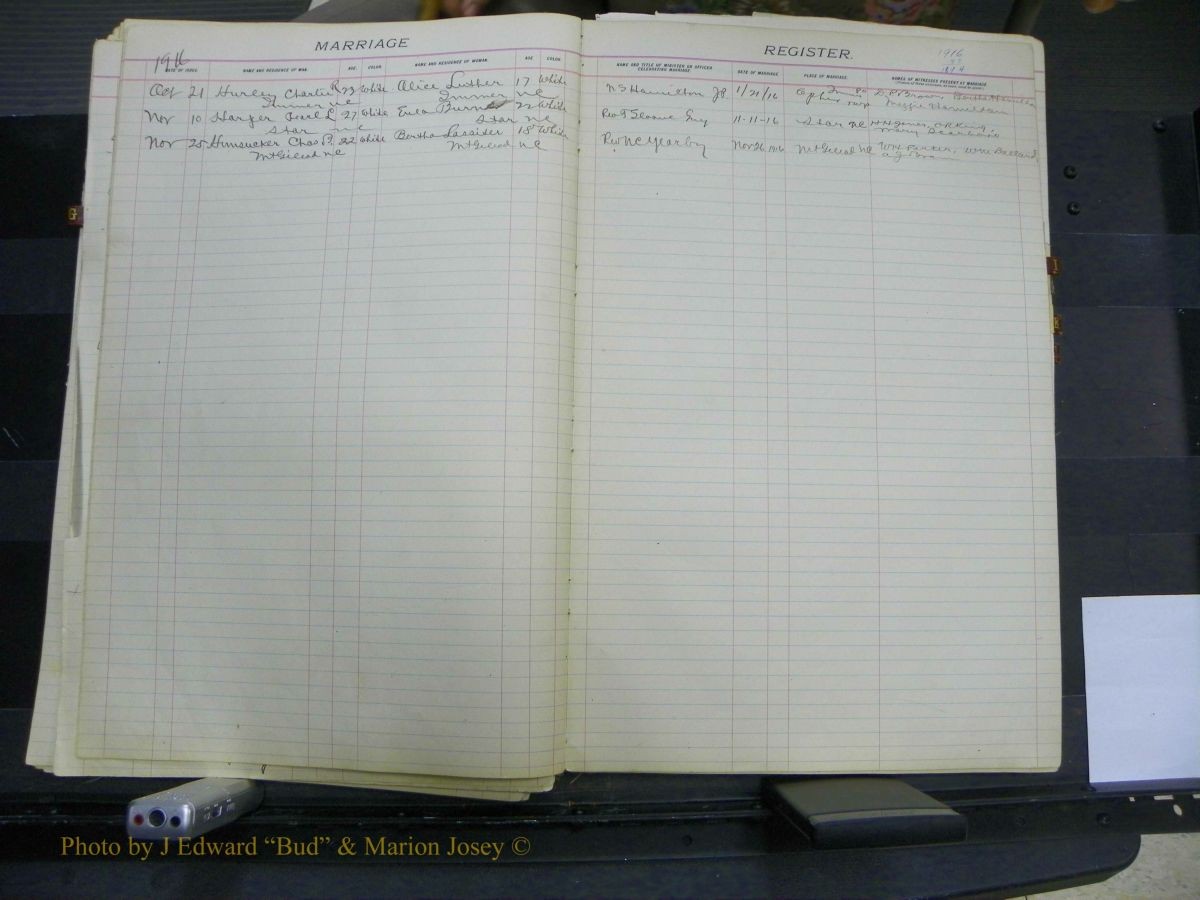 MARRIAGE
1916
DATE OF ISSUE. NAME AND RESIDENCE OF MAN. AGE. COLOR. NAME AND RESIDENCE OF WOMAN. AGE. COLOR.
Oct 21 Hurley Charlie R 23 White Alice Luther 17 White
NC NC
Nov 10 Harper L 27 White Eula 22 White
Star NC Star NC
Nov 25 Hunsucker Chas P. 22 White Bertha Lassiter 18 White
Mt Gilead NC Mt Gilead NC
REGISTER.
1916
NAME AND TITLE OF MINISTER OR OFFICER CELEBRATING MARRIAGE. DATE OF MARRIAGE. PLACE OF MARRIAGE. NAMES OF WITNESSES PRESENT AT MARRIAGE.
N S Hamilton JP 1/21/16 Ophir D. P. Brown, Bertha Hamilton
Maggie Hamilton
Rev T Sloane 11-11-16 Star NC
Mary
Rev N C Yearby Nov 26 1916 Mt Gilead NC W H Parker, Ballard
Photo by J Edward “Bud” & Marion Josey ©